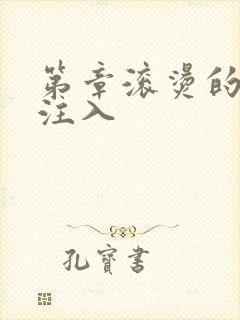 第章滚烫的
注入
孔寶書